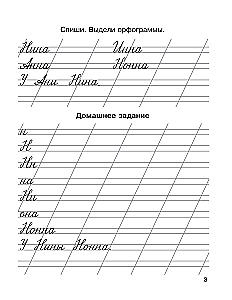 Спиши. Выдели орфограммы.
Нина Инна
Анна Нонна
У Ани Нина.
Домашнее задание
н
Н
Нн
на
Ни
она
Нонна
У Нины Нонна.
3